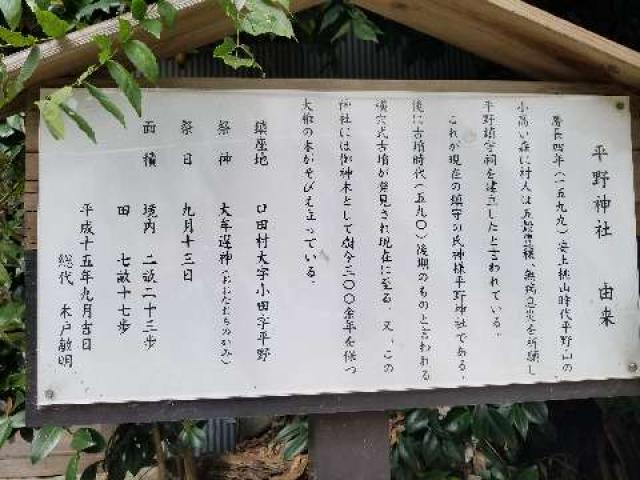 平野神社 由来
慶長四年(一五九九)安土桃山時代平野山の
小高い森に村人は五穀豊穣、無病息災を祈願し
平野鎮守祠を建立したと言われている。
これが現在の鎮守の氏神様平野神社である。
後に古墳時代(五九〇)後期のものと言われる
横穴式古墳が発見され現在に至る。又、この
神社には御神木として樹令三〇〇余年を保つ
大椎の木がそびえ立っている。
鎮座地 口田村大字小田字平野
祭神 大年遅神(おおたおちのかみ)
祭日 九月十三日
面積 境内 二畝二十三歩
田 七畝十七歩
平成十五年九月吉日
総代 木戸敏明